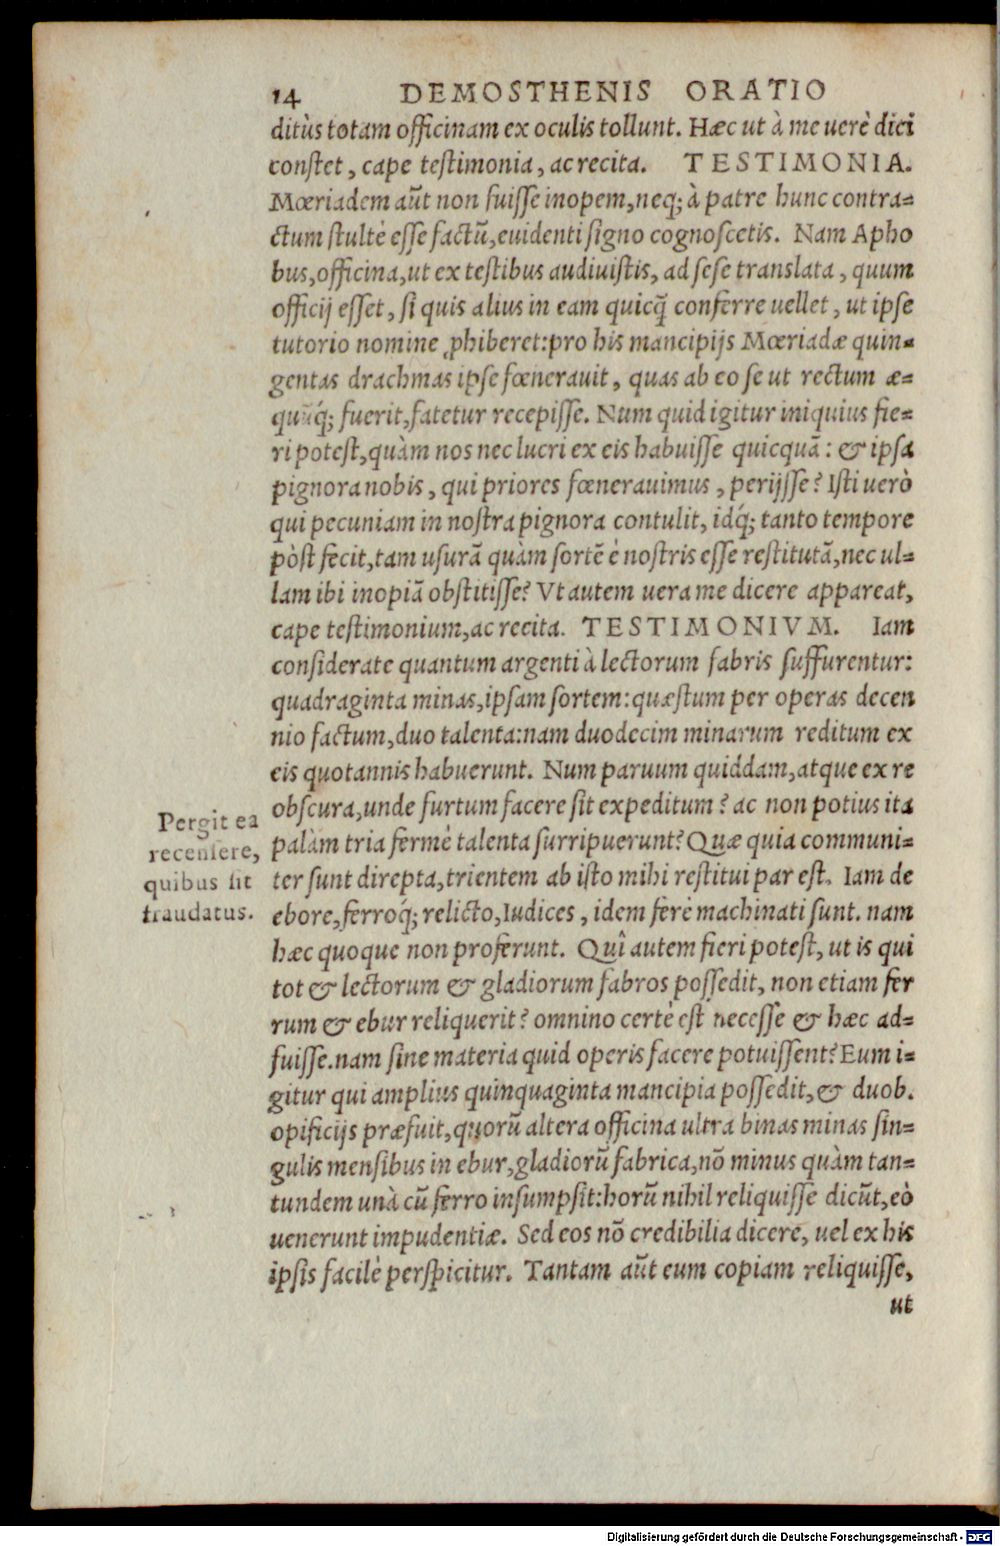 14 DEMOSTHENIS ORATIO
ditùs totam officinam ex oculis tollunt. Hæc ut à me uerè dici
constet, cape testimonia, ac recita. TESTIMONIA.
Mœriadem aũt non fuisse inopem, neq; à patre hunc contra=
ctum stultè esse factũ, euidenti signo cognoscetis. Nam Apho
bus, officina, ut ex testibus audiuistis, ad sese translata, quum
officij esset, si quis alius in eam quicq̃ conferre uellet, ut ipse
tutorio nomine ꝓhiberet: pro his mancipijs Mœriadæ quin=
gentas drachmas ipse fœnerauit, quas ab eo se ut rectum æ=
quũq́; fuerit, fatetur recepisse. Num quid igitur iniquius fie=
ri potest, quàm nos nec lucri ex eis habuisse quicquã: & ipsa
pignora nobis, qui priores fœnerauimus, perijsse? Isti uerò
qui pecuniam in nostra pignora contulit, idq́; tanto tempore
pòst fecit, tam usurã quàm sortẽ è nostris esse restitutã, nec ul=
lam ibi inopiã obstitisse? Vt autem uera me dicere appareat,
cape testimonium, ac recita. TESTIMONIVM. Iam
considerate quantum argenti à lectorum fabris suffurentur:
quadraginta minas, ipsam sortem: quæstum per operas decen
nio factum, duo talenta: nam duodecim minarum reditum ex
eis quotannis habuerunt. Num paruum quiddam, atque ex re
obscura, unde furtum facere sit expeditum? ac non potius ita
palàm tria fermè talenta surripuerunt? Quæ quia communi=
ter sunt direpta, trientem ab isto mihi restitui par est. Iam de
ebore, ferroq́; relicto, Iudices, idem ferè machinati sunt. nam
hæc quoque non proferunt. Quî autem fieri potest, ut is qui
tot & lectorum & gladiorum fabros possedit, non etiam fer
rum & ebur reliquerit? omnino certè est necesse & hæc ad=
fuisse. nam sine materia quid operis facere potuissent? Eum i=
gitur qui amplius quinquaginta mancipia possedit, & duob.
opificijs præfuit, quorũ altera officina ultra binas minas sin=
gulis mensibus in ebur, gladiorũ fabrica, nõ minus quàm tan=
tundem unà cũ ferro insumpsit: horũ nihil reliquisse dicũt, eò
uenerunt impudentiæ. Sed eos nõ credibilia dicere, uel ex his
ipsis facilè perspicitur. Tantam aũt eum copiam reliquisse,
ut
Pergit ea
recensere,
quibus sit
fraudatus.
Digitalisierung gefördert durch die Deutsche Forschungsgemeinschaft - DFG